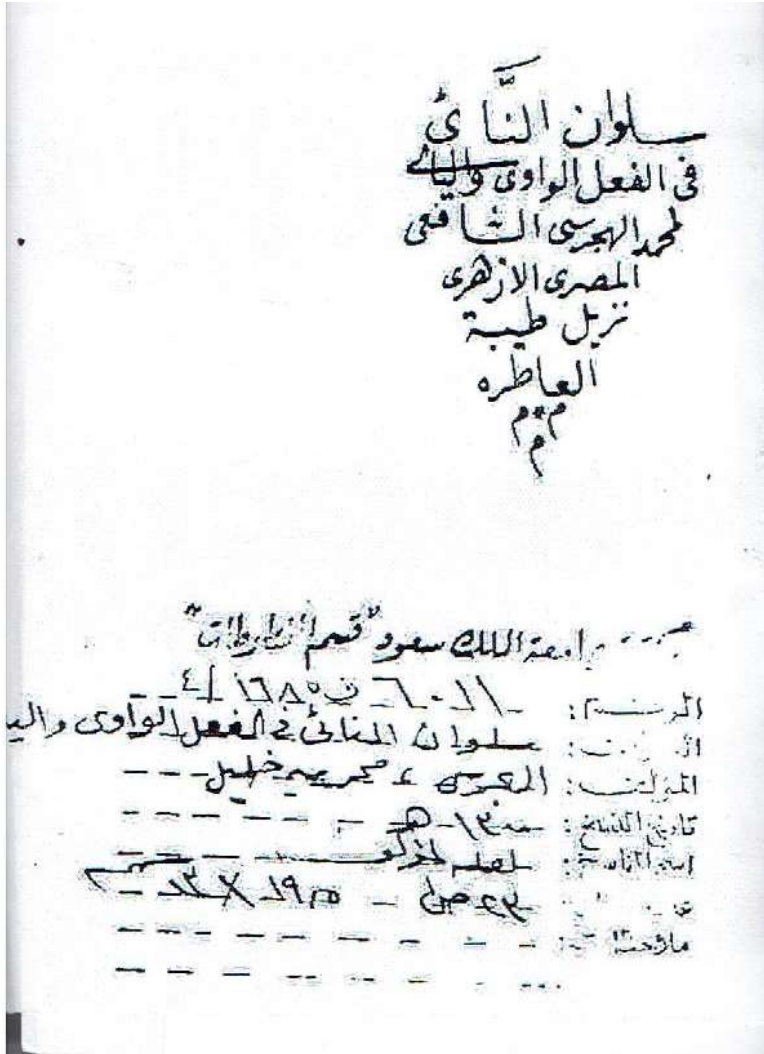 سلوان النَّائى
فى الفعل الواوى واليائے
لمحمد الهجرسى الشافعى
المصرى الازهرى
نزيل طيبة
العاطره
م م
م
جامعة الملك سعود "قسم المخطوطات"
الرقم: ٦٠١١ ف ١٦٨٥/٤
العنوان: سلوان النائى فى الفعل الواوى واليا
المؤلف: الهجرسى ، محمد بن خليل
تاريخ النسخ: ١٣٠٠ هـ
اسم الناسخ: لعله المؤلف
٢٣ ص - ١٩٫٥ × ١٣ سم
ملاحظات: